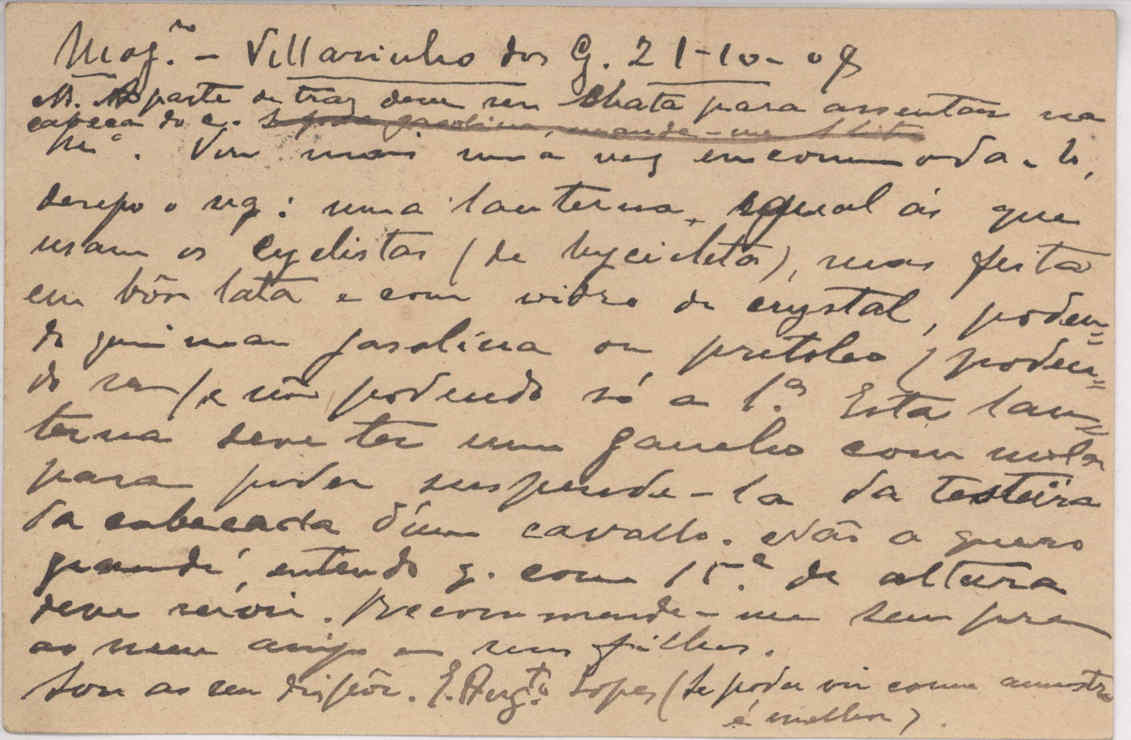 Mog.ro - Villarinho dos G. 21-10-09
A parte de traz deve ser chata para assentar na
cabeça do c. Se pode gasolina, mande-me 1 lit
Am.o. Vou mais uma vez encommoda-lo,
desejo o sg: uma lanterna, egual ás que
usam os cyclistas (de bycicleta), mas feita
em bôa lata e com vidro de crystal, poden=
do queimar gasolina ou petroleo (poden=
do ser), e não podendo só a 1.a Esta lan=
terna deve ter um gancho com mola
para poder suspende-la da testeira
da cabeçada d'um cavallo. Não a quero
grande, entendo q. com 15.e de altura
deve servir. Recommende-me sempre
ao meu amigo e seus filhos.
Sou ao seu dispôr. E. Aug.to Lopes (Se poder vir como amostra
é melhor).